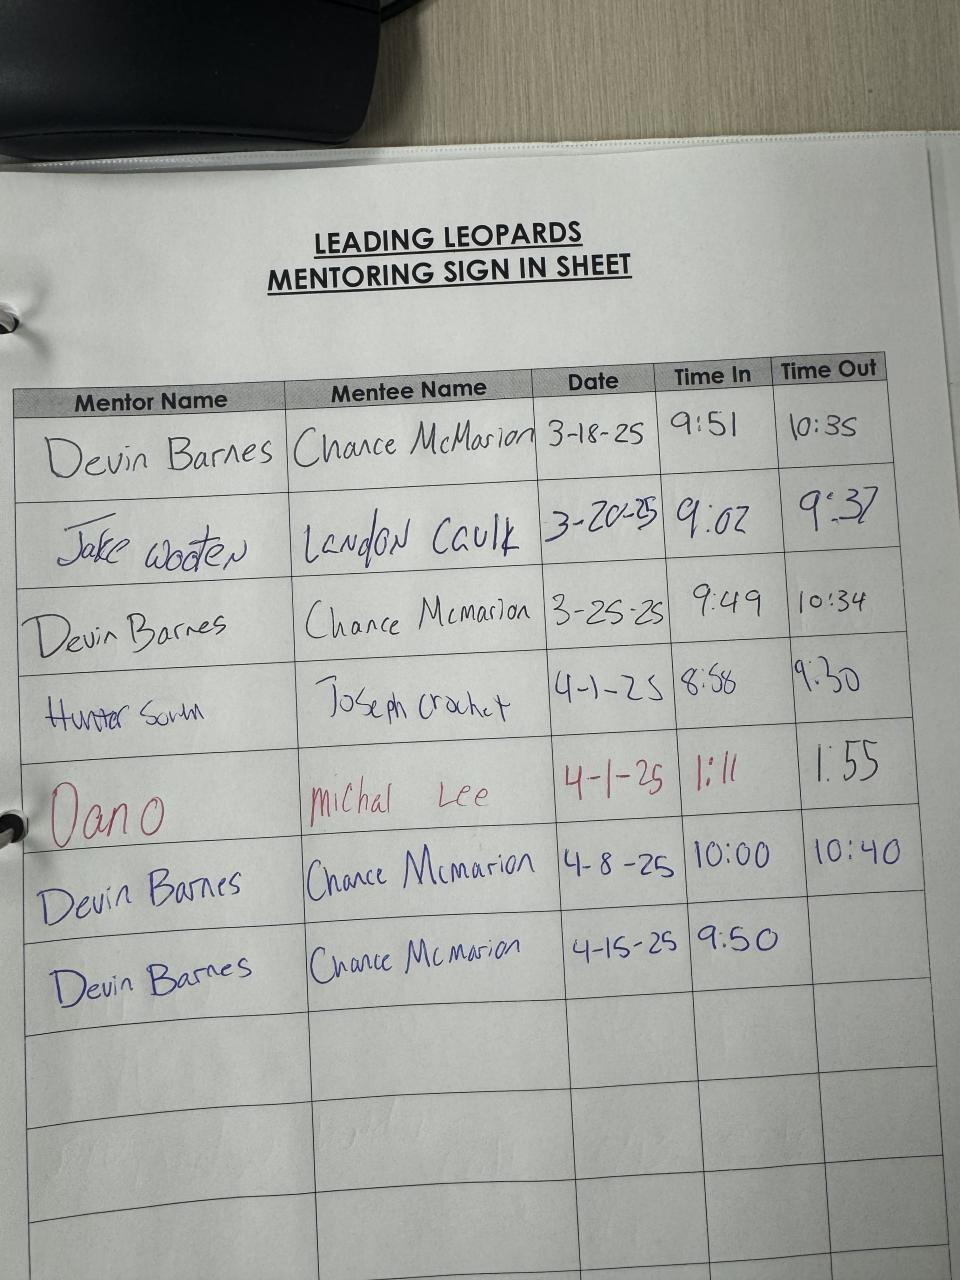 LEADING LEOPARDS
MENTORING SIGN IN SHEET
Mentor Name Mentee Name Date Time In Time Out
Devin Barnes Chance McMarion 3-18-25 9:51 10:35
Jake Wooten Landon Caulk 3-20-25 9:02 9:37
Devin Barnes Chance Mcmarion 3-25-25 9:49 10:34
Hunter Joseph Crochet 4-1-25 8:58 9:30
Dano Michal Lee 4-1-25 1:11 1:55
Devin Barnes Chance Mcmarion 4-8-25 10:00 10:40
Devin Barnes Chance Mcmarion 4-15-25 9:50